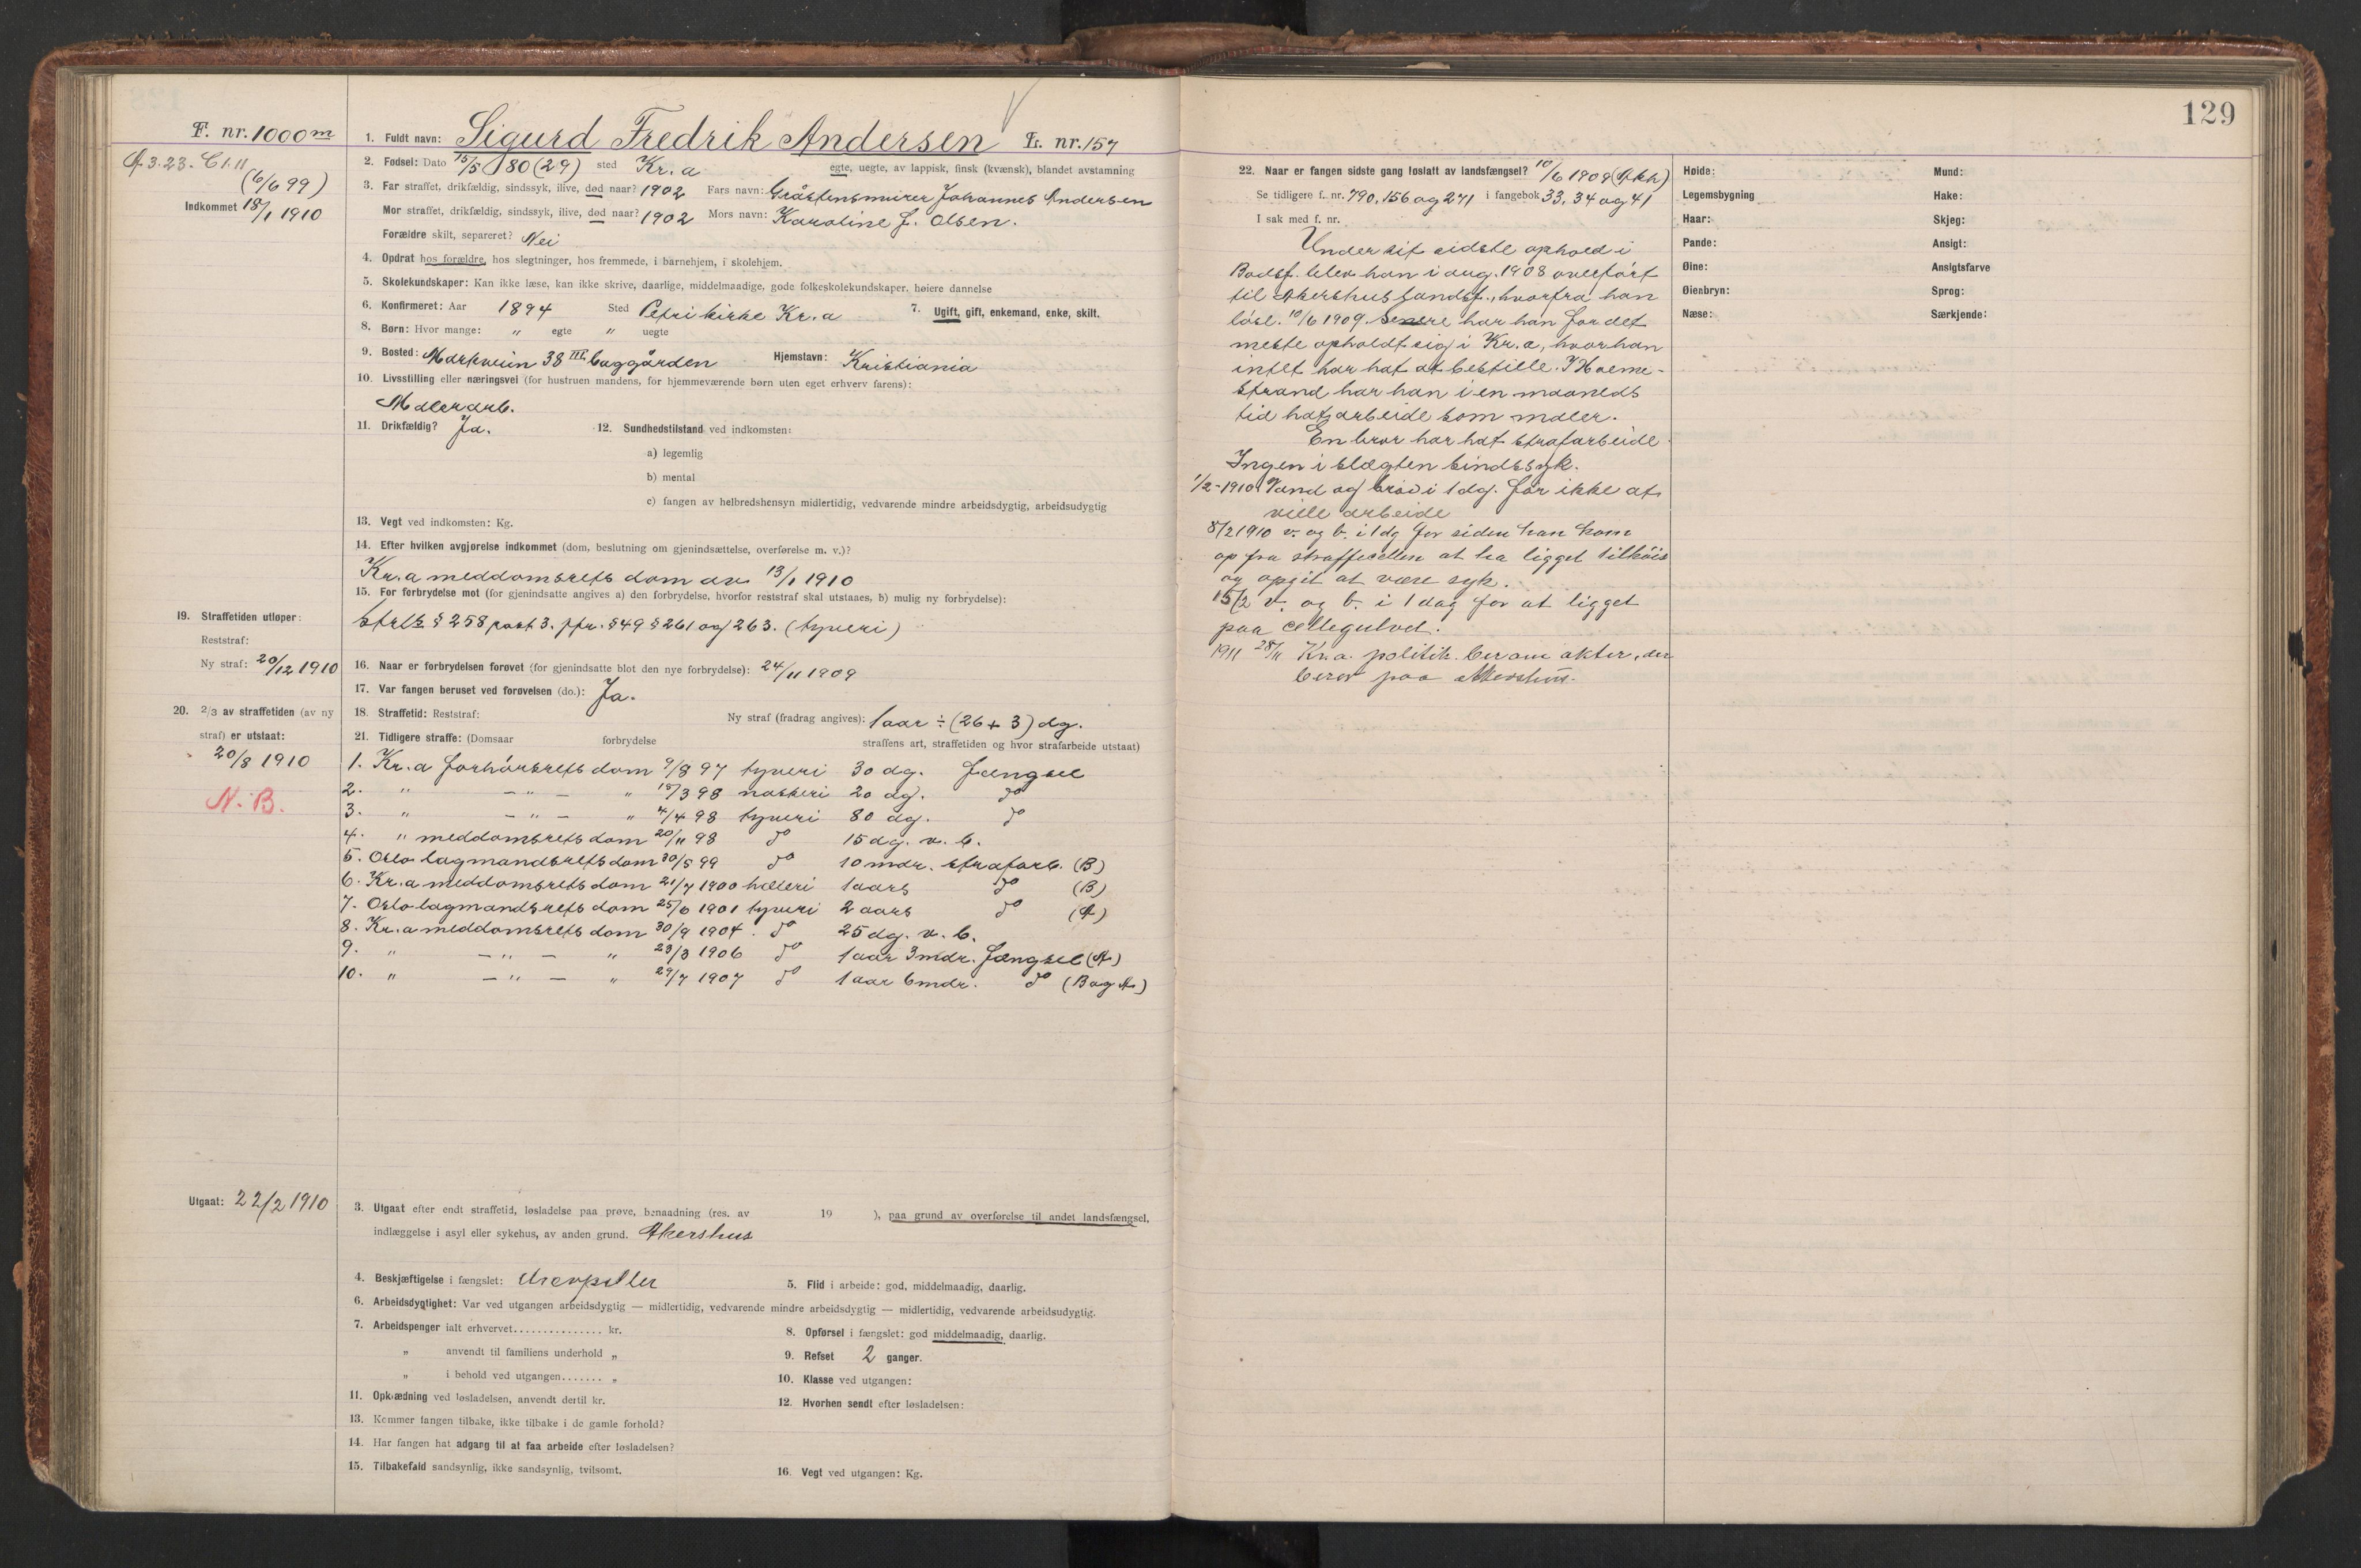 129
F. nr. 1000 m
A. 3. 23. Cl. 11
(6/6 99)
Indkommet 18/1 1910
1. Fuldt navn: Sigurd Fredrik Andersen L. nr. 157
2. Fødsel: Dato 15/5 1880 (29) sted Kr.a egte, uegte, av lappisk, finsk (kvænsk), blandet avstamning
3. Far straffet, drikfældig, sindssyk, ilive, død naar? 1902 Fars navn: Gråstensmurer Johannes Andersen
Mor straffet, drikfældig, sindssyk, ilive, død naar? 1902 Mors navn: Karoline J. Olsen.
Forældre skilt, separeret? Nei
4. Opdrat hos forældre, hos slegtninger, hos fremmede, i barnehjem, i skolehjem.
5. Skolekundskaper: Kan ikke læse, kan ikke skrive, daarlige, middelmaadige, gode folkeskolekundskaper, høiere dannelse
6. Konfirmeret: Aar 1894 Sted Petri kirke Kr.a 7. Ugift, gift, enkemand, enke, skilt.
8. Børn: Hvor mange: " egte " uegte
9. Bosted: Markveien 38 III baggården Hjemstavn: Kristiania
10. Livsstilling eller næringsvei (for hustruen mandens, for hjemmeværende børn uten eget erhverv farens):
Malerarb.
11. Drikfældig? Ja. 12. Sundhedstilstand ved indkomsten:
a) legemlig
b) mental
c) fangen av helbredshensyn midlertidig, vedvarende mindre arbeidsdygtig, arbeidsudygtig
13. Vegt ved indkomsten: Kg.
14. Efter hvilken avgjørelse indkommet (dom, beslutning om gjenindsættelse, overførelse m. v.)?
Kr.a meddomsrets dom av 13/1 1910
15. For forbrydelse mot (for gjenindsatte angives a) den forbrydelse, hvorfor reststraf skal utstaaes, b) mulig ny forbrydelse):
Strls § 258 post 3. jfr. § 49 § 261 og 263. (tyveri)
19. Straffetiden utløper:
Reststraf:
Ny straf: 20/12 1910
16. Naar er forbrydelsen forøvet (for gjenindsatte blot den nye forbrydelse): 24/11 1909
17. Var fangen beruset ved forøvelsen (do.): Ja.
20. 2/3 av straffetiden (av ny straf) er utstaat:
20/8 1910
N. B.
18. Straffetid: Reststraf: Ny straf (fradrag angives): 1 aar ÷ (26 + 3) dg.
21. Tidligere straffe: (Domsaar forbrydelse straffens art, straffetiden og hvor strafarbeide utstaat)
1. Kr.a forhörsrets dom 9/8 97 tyveri 30 dg. Fængsel
2. " — " — " 15/3 98 naskeri 20 dg. do
3. " — " — " 4/4 98 tyveri 80 dg. do
4. " meddomsrets dom 20/11 98 do 15 dg. v. b.
5. Oslo lagmandsrets dom 30/5 99 do 10 mdr. strafarb. (B)
6. Kr.a meddomsrets dom 21/7 1900 hæleri 1 aars do (B)
7. Oslo lagmandsrets dom 25/6 1901 tyveri 2 aars do (A)
8. Kr.a meddomsrets dom 30/9 1904. do 25 dg. v. b.
9. " — " — " 23/3 1906 do 1 aar 3 mdr. Fængsel (A)
10. " — " — " 29/7 1907 do 1 aar 6 mdr. do (B og A)
Utgaat: 22/2 1910
3. Utgaat efter endt straffetid, løsladelse paa prøve, benaadning (res. av 19 ), paa grund av overførelse til andet landsfængsel,
indlæggelse i asyl eller sykehus, av anden grund. Akershus
4. Beskjæftigelse i fængslet: 5. Flid i arbeide: god, middelmaadig, daarlig.
6. Arbeidsdygtighet: Var ved utgangen arbeidsdygtig — midlertidig, vedvarende mindre arbeidsdygtig — midlertidig, vedvarende arbeidsudygtig.
7. Arbeidspenger ialt erhvervet............... kr. 8. Opførsel i fængslet: god middelmaadig, daarlig.
" anvendt til familiens underhold " 9. Refset 2 ganger.
" i behold ved utgangen....... " 10. Klasse ved utgangen:
11. Opklædning ved løsladelsen, anvendt dertil kr. 12. Hvorhen sendt efter løsladelsen:
13. Kommer fangen tilbake, ikke tilbake i de gamle forhold?
14. Har fangen hat adgang til at faa arbeide efter løsladelsen?
15. Tilbakefald sandsynlig, ikke sandsynlig, tvilsomt. 16. Vegt ved utgangen: Kg.
22. Naar er fangen sidste gang løslatt av landsfængsel? 10/6 1909 (Akh)
Se tidligere f. nr. 790, 156 og 271 i fangebok 33, 34 og 41
I sak med f. nr.
Under sit sidste ophold i
Bodsf. blev han i aug. 1908 overført
til Akershus landsf., hvorfra han
løsl. 10/6 1909. Senere har han for det
meste opholdt sig i Kr.a, hvor han
intet har hat at bestille. I Holme-
strand har han i en maaneds
tid hat arbeide som maler.
En bror har hat strafarbeide.
Ingen i slægten sindssyk.
1/2-1910 Vand og bröd i 1 dg. for ikke at
ville arbeide
8/2 1910 v. og b. i 1 dg for siden han kom
op fra straffecellen at ha ligget tilköis
og opgit at være syk.
15/2 v. og b. i 1 dag for at ligget
paa cellegulvet.
1911 28/11 Kr.a. politik. ber om akter, der
beror paa Akershus.
Høide:
Legemsbygning
Haar:
Pande:
Øine:
Øienbryn:
Næse:
Mund:
Hake:
Skjeg:
Ansigt:
Ansigtsfarve
Sprog:
Særkjende: